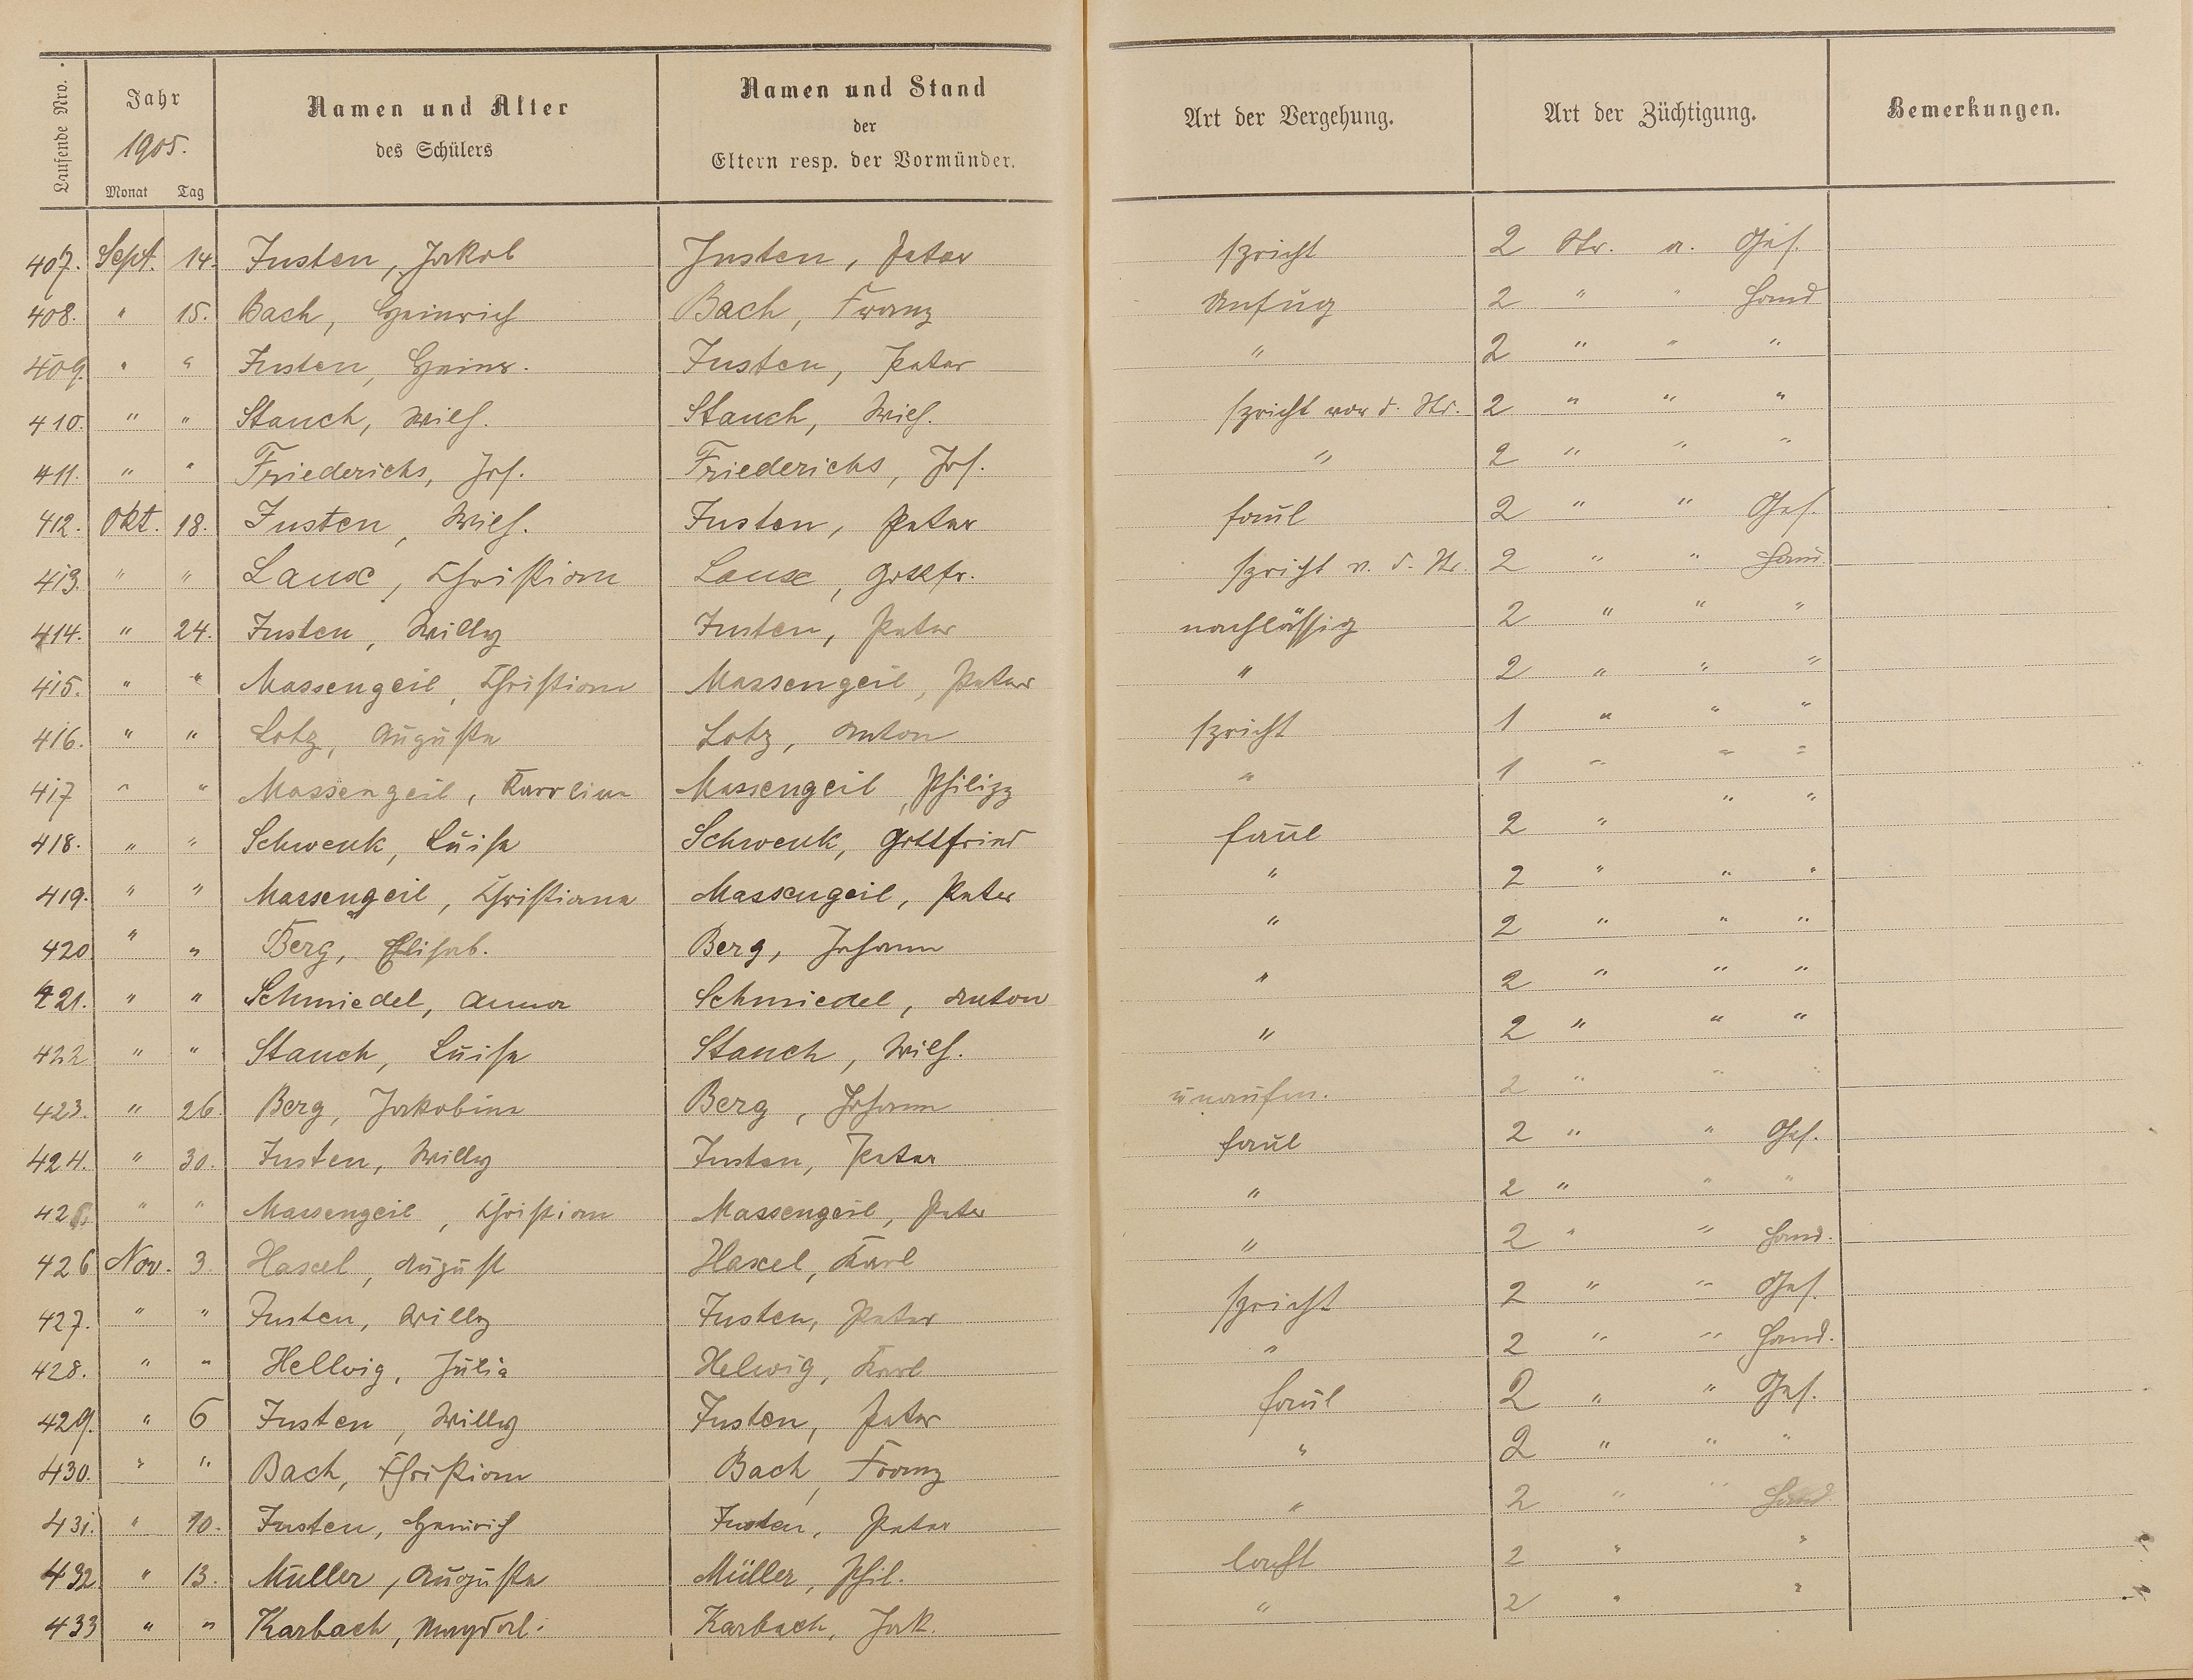 Laufende Nro.
Jahr
1905.
Monat Tag
Namen und Alter
des Schülers
Namen und Stand
der
Eltern resp. der Vormünder.
Art der Vergehung.
Art der Züchtigung.
Bemerkungen.
407. Sept. 14. Justen, Jakob Justen, Peter spricht 2 Str. a. Ges.
408. " 15. Bach, Heinrich Bach, Franz Unfug 2 " " Hand
409. " " Justen, Heinr. Justen, Peter " 2 " " "
410. " " Stauch, Wilh. Stauch, Wilh. spricht vor d. Str. 2 " " "
411. " " Friederichs, Jos. Friederichs, Jos. " 2 " " "
412. Okt. 18. Justen, Wilh. Justen, Peter faul 2 " " Ges.
413. " " Laux, Christian Laux, Gottfr. spricht v. d. Str. 2 " " Hand.
414. " 24. Justen, Willy Justen, Peter nachlässig 2 " " "
415. " " Massengeil, Christian Massengeil, Peter " 2 " " "
416. " " Lotz, Auguste Lotz, Anton spricht 1 " " "
417 " " Massengeil, Karoline Massengeil, Philipp " 1 " " "
418. " " Schwenk, Luise Schwenk, Gottfried faul 2 " " "
419. " " Massengeil, Christiane Massengeil, Peter " 2 " " "
420 " " Berg, Elisab. Berg, Johann " 2 " " "
421. " " Schmiedel, Anna Schmiedel, Anton " 2 " " "
422 " " Stauch, Luise Stauch, Wilh. " 2 " " "
423. " 26. Berg, Jakobine Berg, Johann 2 " " "
424. " 30. Justen, Willy Justen, Peter faul 2 " " Ges.
425. " " Massengeil, Christian Massengeil, Peter " 2 " " "
426 Nov. 3. Haxel, August Haxel, Karl " 2 " " Hand.
427. " " Justen, Willy Justen, Peter spricht 2 " " Ges.
428. " " Hellwig, Julia Helwig, Karl " 2 " " Hand.
429. " 6 Justen, Willy Justen, Peter faul 2 " " Ges.
430. " " Bach, Christian Bach, Franz " 2 " " "
431. " 10. Justen, Heinrich Justen, Peter " 2 " " Hand
432 " 13. Müller, Auguste Müller, Phil. lacht 2 " "
433 " " Karbach, Magdal. Karbach, Jak. " 2 " "